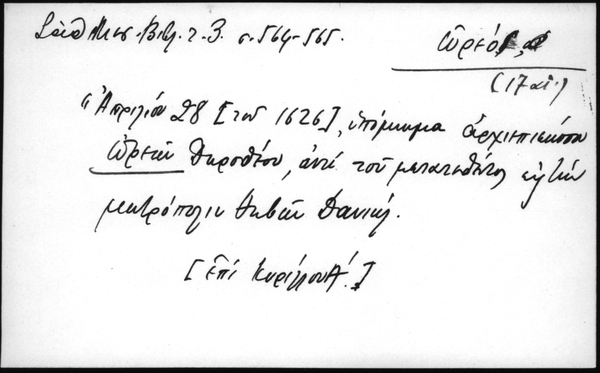 Σάθ Μεσ. Βιβ. τ. 3. σ. 564-565.
Ὠρεός,
(17 αἰ.)
"Ἀπριλίου 28 [τοῦ 1626], ὑπόμνημα ἀρχιεπισκόπου
Ὠρεῶν Δωροθέου, ἀντὶ τοῦ μετατεθέντος εἰς τὴν
μητρόπολιν Θηβῶν Δανιήλ.
[ἐπὶ Κυρίλλου Α΄.]